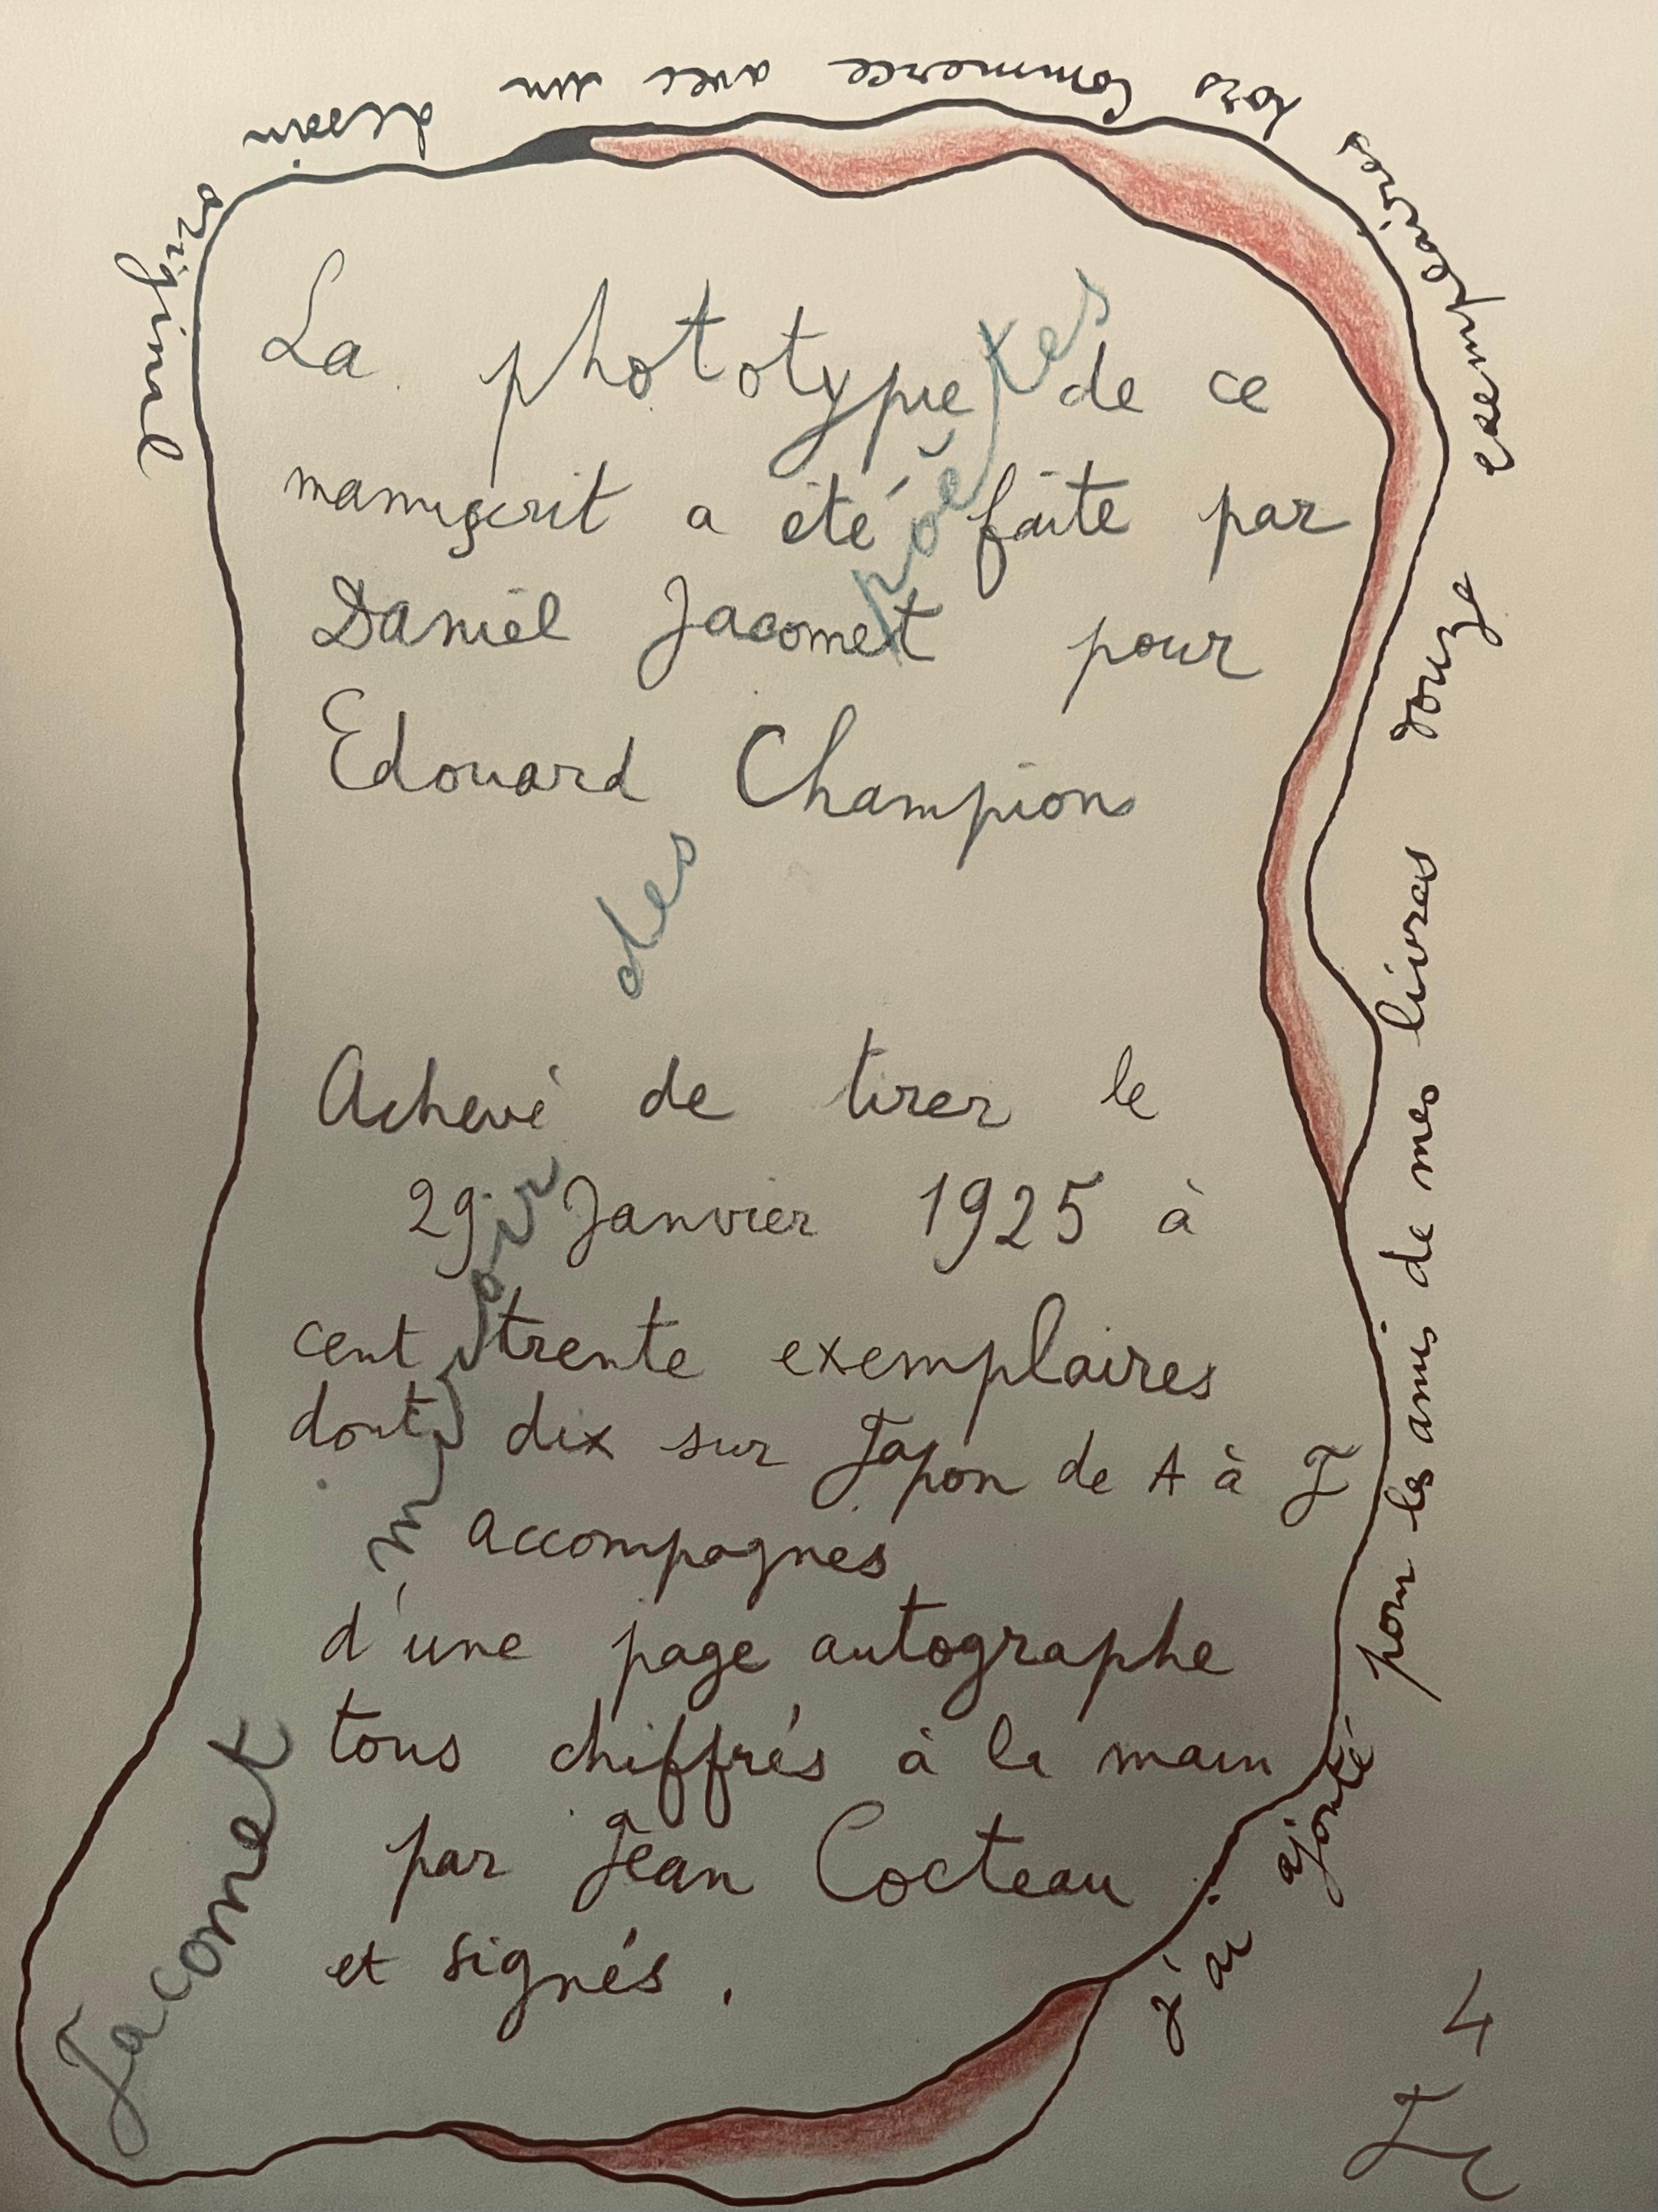 La phototypie de ce
manuscrit a été faite par
Daniel Jacomet pour
Edouard Champion
Achevé de tirer le
29 Janvier 1925 à
cent trente exemplaires
dont dix sur Japon de A à J
accompagnés
d'une page autographe
tous chiffrés à la main
par Jean Cocteau
et signés.
Jacomet
miroir
des
poëtes
j'ai ajouté pour les amis de mes livres douze exemplaires hors commerce avec un dessin original
4
JC